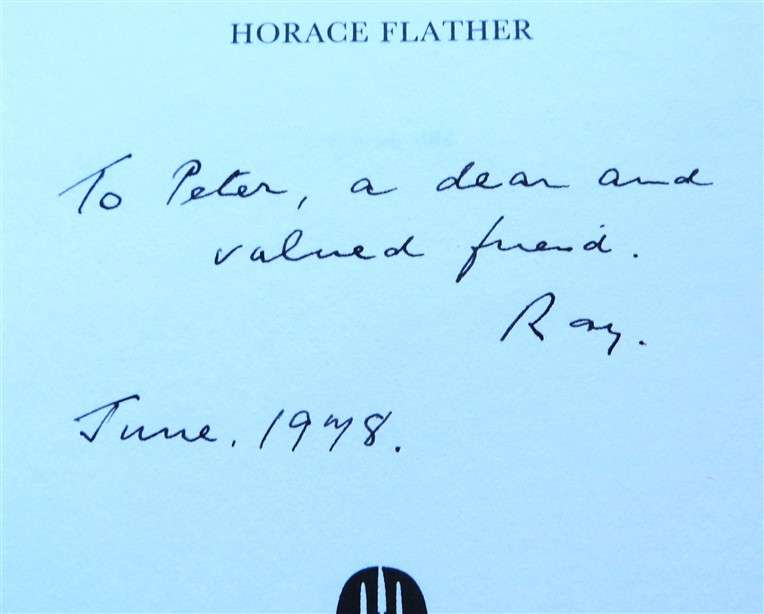 HORACE FLATHER
To Peter, a dear and
valued friend.
Ray.
June, 1978.